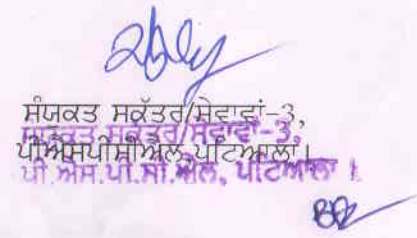 ਸੰਯੁਕਤ ਸਕੱਤਰ/ਸੇਵਾਵਾਂ-3,
ਸੰਯੁਕਤ ਸਕੱਤਰ/ਸੇਵਾਵਾਂ-3,
ਪੀਐਸਪੀਸੀਐਲ, ਪਟਿਆਲਾ।
ਪੀ.ਐਸ.ਪੀ.ਸੀ.ਐਲ, ਪਟਿਆਲਾ।